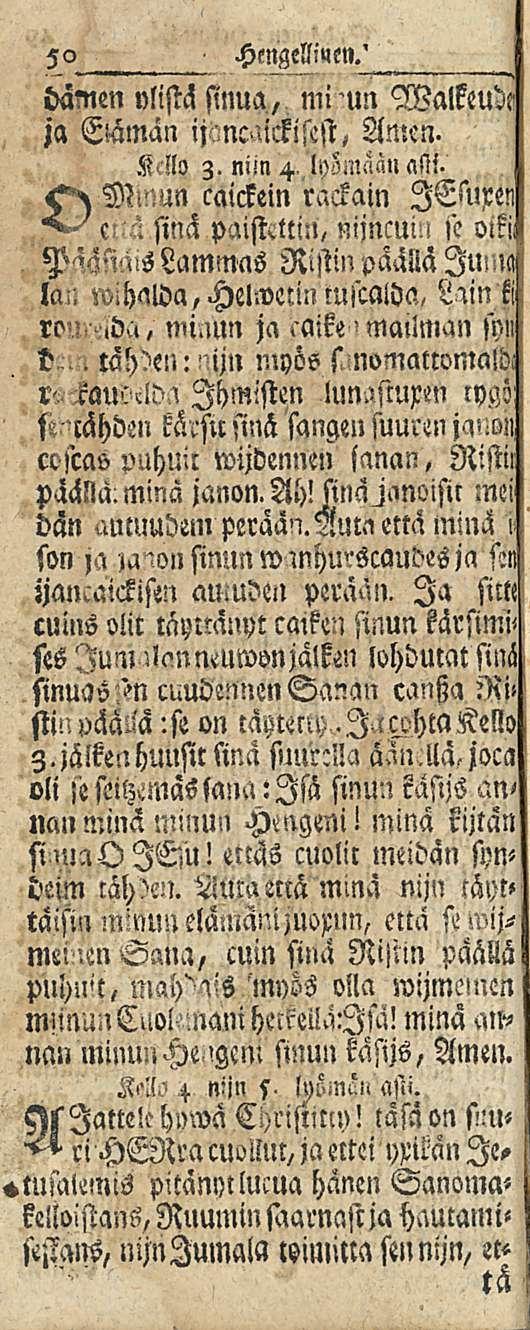 50 Hengellinen.
dämen ylistä sinua, minun Walkeude
ja Elämän ijancaickisest, Amen.
Kello 3. nijn 4. lyömään asti.
O Minun caickein rackain JEsuxen
että sinä paistettin, nijncuin se oikia
Pääsiäis Lammas Ristin päällä Juma
lan wihalda, Helwetin tuscalda, Lain ki
rouxelda, minun ja caiken mailman syn
dein tähden: nijn myös sanomattomalda
rackaudelda Ihmisten lunastuxen tygö
sentähden kärsit sinä sangen suuren janon
coscas puhuit wijdennen sanan, Ristin
päällä: minä janon. Ah! sinä janoisit mei
dän autuudem perään. Auta että minä i
son ja janon sinun wanhurscaudes ja sen
ijancaickisen autuden perään. Ja sitte
cuins olit täyttänyt caiken sinun kärsimi-
ses Jumalan neuwon jälken lohdutat sinä
sinuas sen cuudennen Sanan canßa Ri-
stin päällä: se on täytetty. Ja cohta Kello
3. jälken huusit sinä suurella äänellä, joca
oli se seitzemäs sana: Isä sinun käsijs an-
nan minä minun Hengeni! minä kijtän
sinua O JEsu! ettäs cuolit meidän syn-
deim tähden. Auta että minä nijn täyt-
täisin minun elämäni juoxun, että se wij-
meinen Sana, cuin sinä Ristin päällä
puhuit, mahdais myös olla wijmeinen
minun Cuolemani hetkellä: Isä! minä an-
nan minun Hengeni sinun käsijs, Amen.
Kello 4. nijn 5. lyömän asti.
AJattele hywä Christitty! täsä on suu-
ri HERra cuollut, ja ettei yxikän Je-
rusalemis pitänyt lucua hänen Sanoma-
kelloistans, Ruumin saarnast ja hautami-
sestans, nijn Jumala toimitta sen nijn, et-
tä